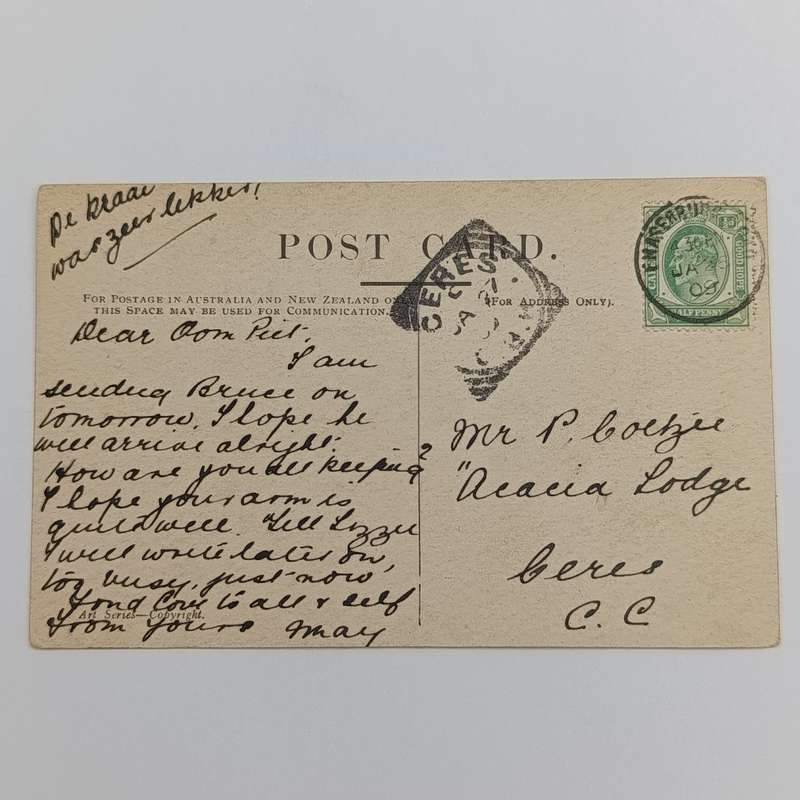 De kraai
was zeer lekker!
POST CARD.
FOR POSTAGE IN AUSTRALIA AND NEW ZEALAND ONLY
THIS SPACE MAY BE USED FOR COMMUNICATION.
(FOR ADDRESS ONLY).
CERES
HALF PENNY
Dear Oom Piet.
I am
sending Bruce on
tomorrow, I hope he
will arrive alright.
How are you all keeping?
I hope your arm is
quite well. Tell Lizzie
I will write later on,
too busy, just now,
Fond Love to all & self
Art Series—Copyright.
From Yours May
Mr P. Coetzee
"Acacia Lodge
Ceres
C. C